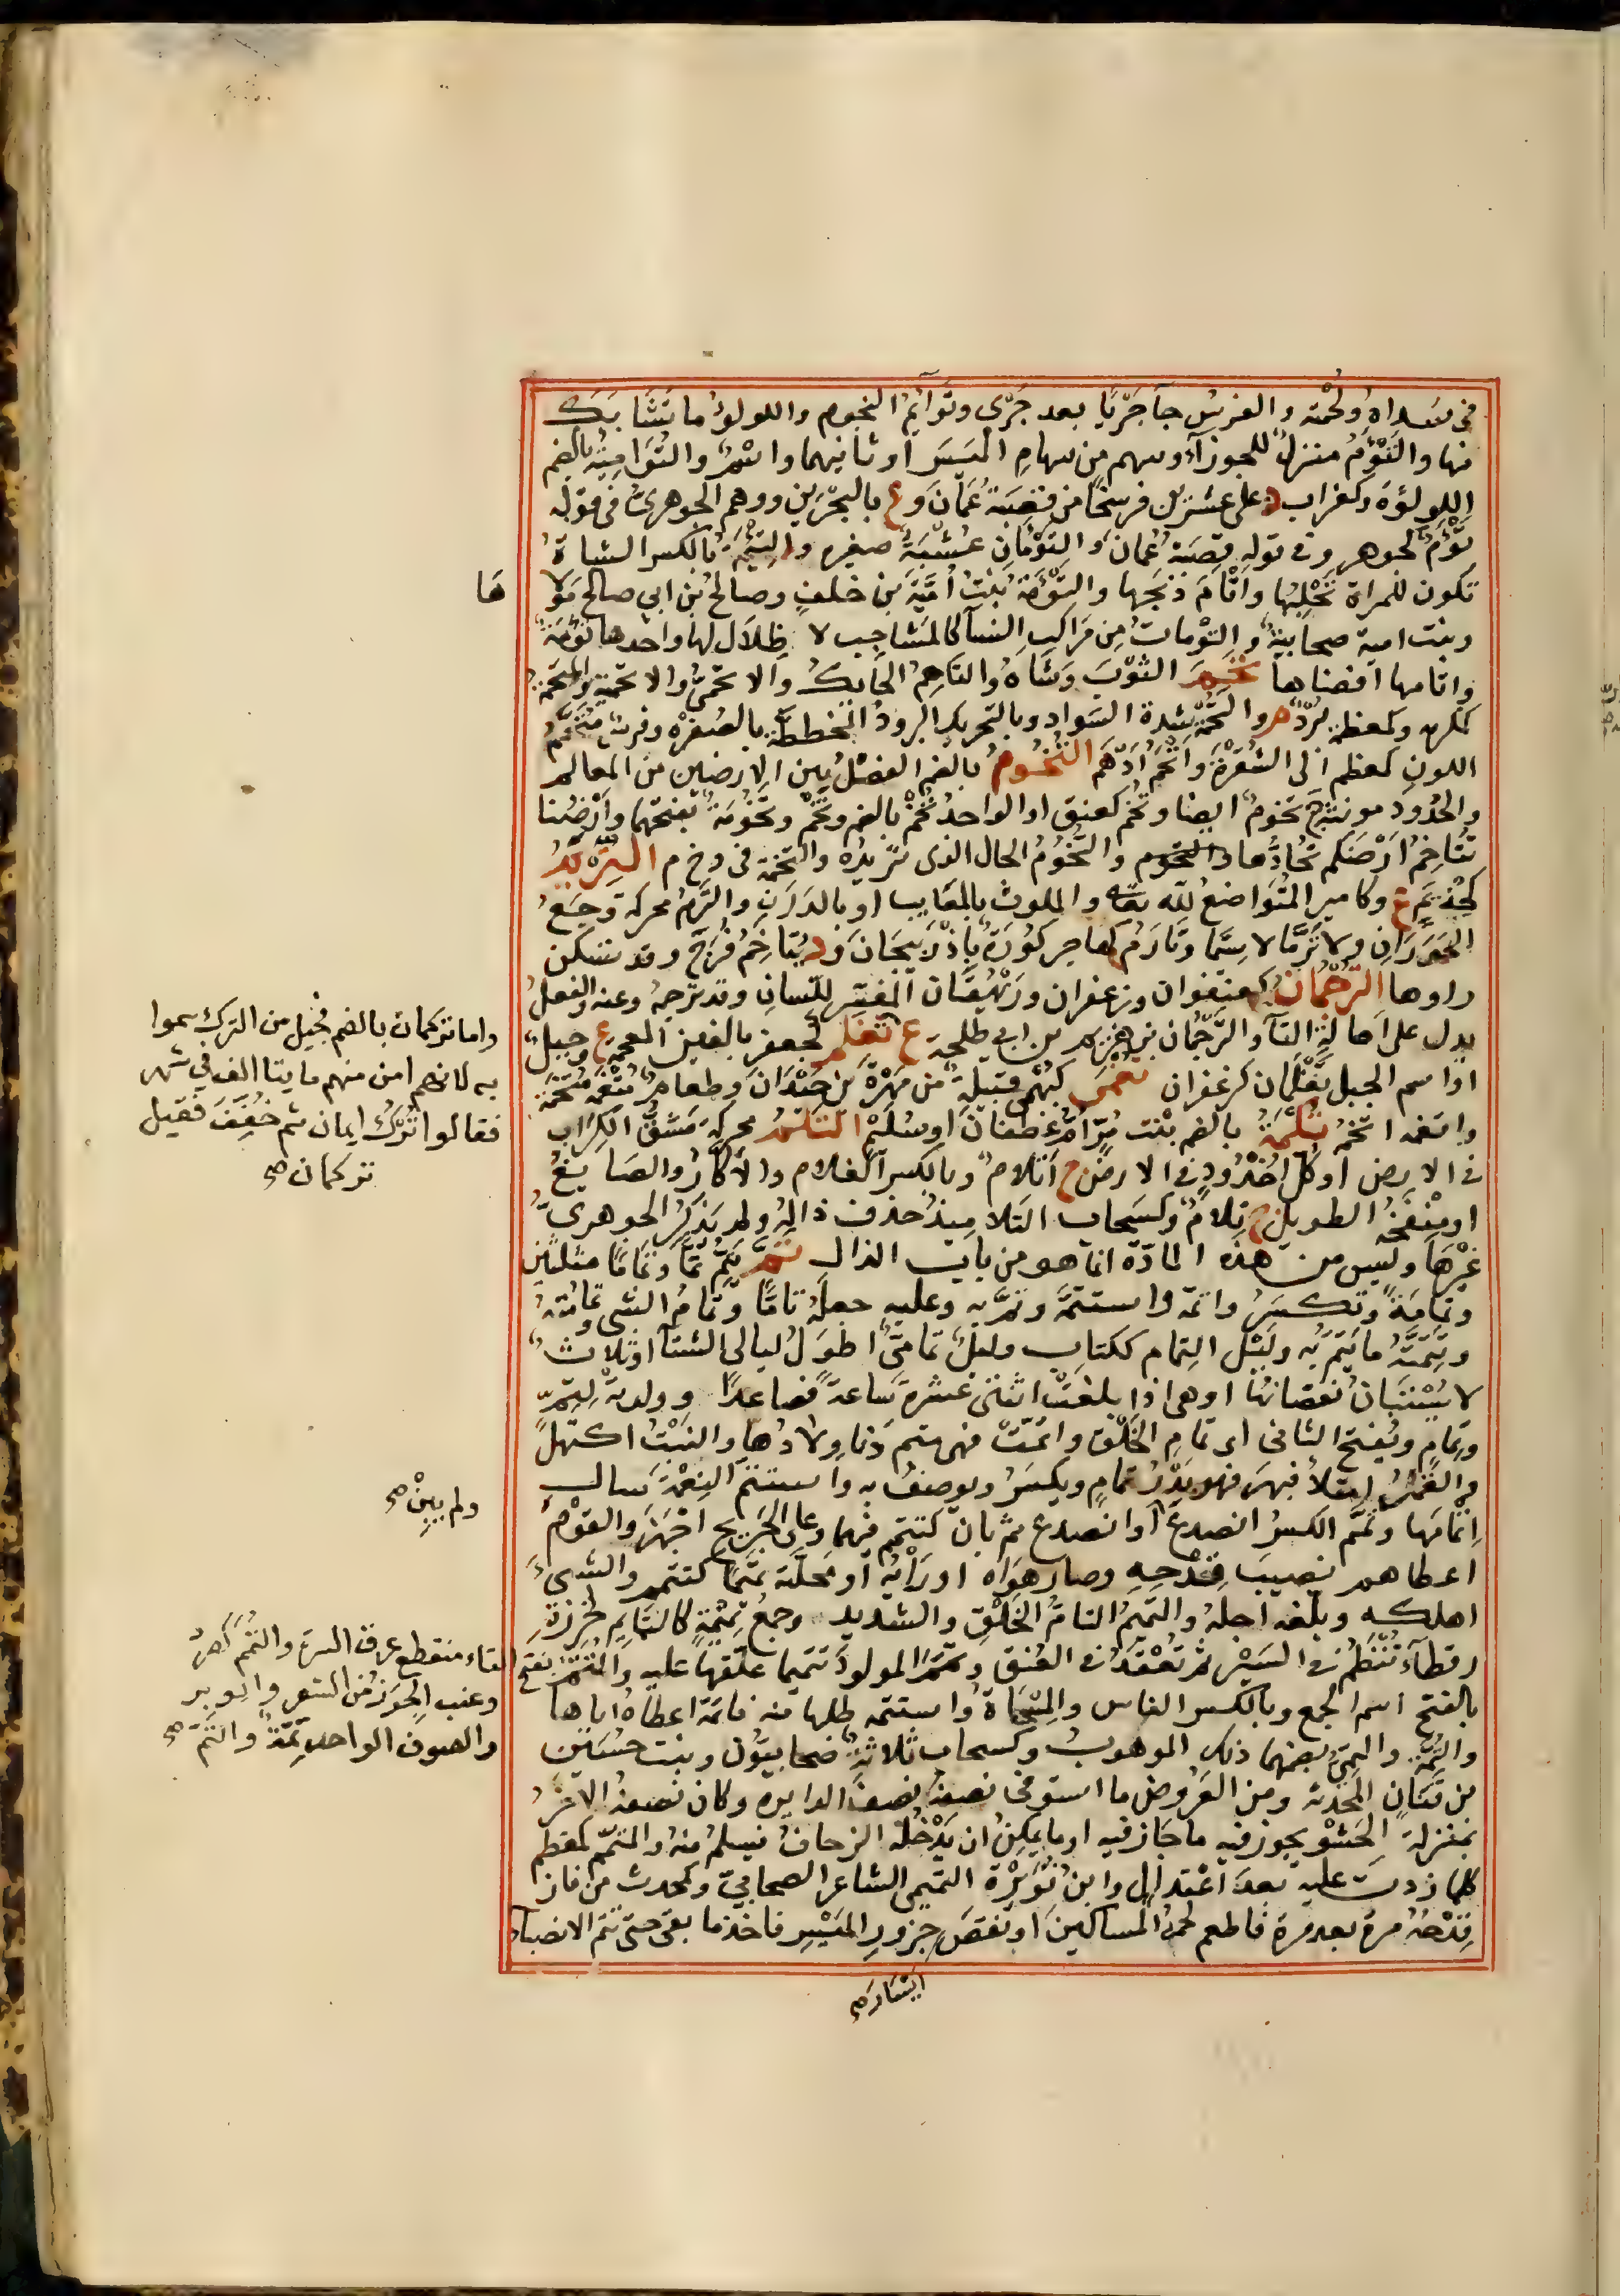 في سداه ولحمة والفرس جآ جريا بعد جرى وتوآيم النجوم واللولؤ ما تشابك
منها والتوم منزل للجوزآء وسهم من سهام الميسر او ثانيهما واسم والتوامية بالضم
اللولؤة وكغراب د على عشرين فرسخا من قصبة عمان وع بالبحرين ووهم الجوهرى في قوله
توم لجوهر وفي قوله قصبة عمان والتومان عشبة صغيره والتيمة بالكسر الشاة
تكون للمراة تحلبها واتام ذبحها والتومة بنت امية بن خلف وصالح بن ابي صالح مولا
ها
وبنت امية صحابية والتومات من مراكب النسآ كالمشاجب لا ظلال لها واحدها تومة
واتامها افضاها تحم الثوب وشاه والتاحم الحايك والاتحمى والاتحمية والمتحمة
كمكرم وكمعظم برد م والتحمة شدة السواد وبالتحريك البرود المخططة بالصفره وفرس متحم
اللون كمعظم الى الشقرة واتحم ادهم التخوم بالضم الفصل بين الارضين من المعالم
والحدود مونثة ج تخوم ايضا وتخم كعنق او الواحد تخم بالضم وتخم وتخومة بفتحهما وارضنا
تتاخم ارضكم تحادها والتخوم والتخوم الحال الذى تريده والتخمة في وخ م التريم
كحذيم ع وكامير المتواضع لله تعالى والملوث بالمعايب او بالدرن والترم محركة وجع
الخوران ولا ترما لاسيما وتارم كهاجر كورة باذربيجان ود يتاخم فرج وقد تسكن
راوها الترجمان كعنفوان وزعفران وريهقان المفسر للسان وقد ترجمه وعنه والفعل
يدل على اصالة التآ والترجمان بن هريم بن ابي طلحة ع تغلم كجعفر بالغين المعجمة ع وجبل
او اسم الجبل تغلمان كزعفران تغمى كبهمى قبيلة من مهرة بن حيدان وطعام متغمة متخمة
واتغمه اتخمه تكمة بالضم بنت مر ام غطفان او سليم التلم محركة مشق الكراب
في الارض او كل اخدود في الارض ج اتلام وبالكسر الغلام والاكار والصايغ
او منفخه الطويل ج تلام وكسحاب التلاميذ حذف ذاله ولم يذكر الجوهرى
غيرها وليس من هذه المادة انما هو من باب الذال تم يتم تما وتماما مثلثين
وتمامة وتكسر واتمه واستتمه وتم به وعليه جعله تاما وتمام الشى وتمامته
وتتمته ما يتم به وليل التمام ككتاب وليل تمامى اطول ليالى الشتآ او ثلاث
لا يستبان نقصانها او هى اذا بلغت اثنتى عشرة ساعة فصاعدا وولدته لتم
وتمام ويفتح الثانى اى تمام الخلق واتمت فهى متم دنا ولادها والنبت اكتهل
والقمر امتلا فبهر فهو بدر تمام ويكسر ويوصف به واستتم النعمة سال
اتمامها وتمم الكسر انصدع او انصدع ثم بان كتتمم فيهما وعلى الجريح اجهز والقوم
اعطاهم نصيب قدحه وصار هواه او رايه او محلته تميميا كتتمم والشى
اهلكه وبلغه اجله والتميم التام الخلق والشديد وجمع تميمة كالتمايم لخرزة
رقطآء تنظم في السير ثم تعقد في العنق وتمم المولود تتميما علقها عليه والمتم بفتح
بالفتح اسم الجمع وبالكسر الفاس والمسحاة واستتمه طلبها منه فاتمه اعطاه اياها
والتمة والتمى بضمهما ذلك الموهوب وكسحاب ثلاثة صحابيون وبنت حسين
بن قنان المحدثة ومن العروض ما استوفى نصفه نصف الدايره وكان نصفه الاخر
بمنزلة الحشو يجوز فيه ما جاز فيه او ما يمكن ان يدخله الزحاف فيسلم منه والمتمم كمعظم
كلما زدت عليه بعد اعتدال وابن نويرة التميمى الشاعر الصحابي وكمحدث من فاز
قدحه مرة بعد مرة فاطعم لحمه المساكين او نقص جزور الميسر فاخذ ما بقى حتى تتم الانصباء
ايسار صح
واما تركمان بالضم فجيل من الترك سموا
به لانهم امن منهم مايتا الف في شهر
فقالوا ترك ايمان ثم خفف فقيل
تركمان صح
ولم يبن صح
التاء منقطع عرق السرة والتمم كصرد
وعنب الجزز من الشعر والوبر
والصوف الواحد تمة والتم صح